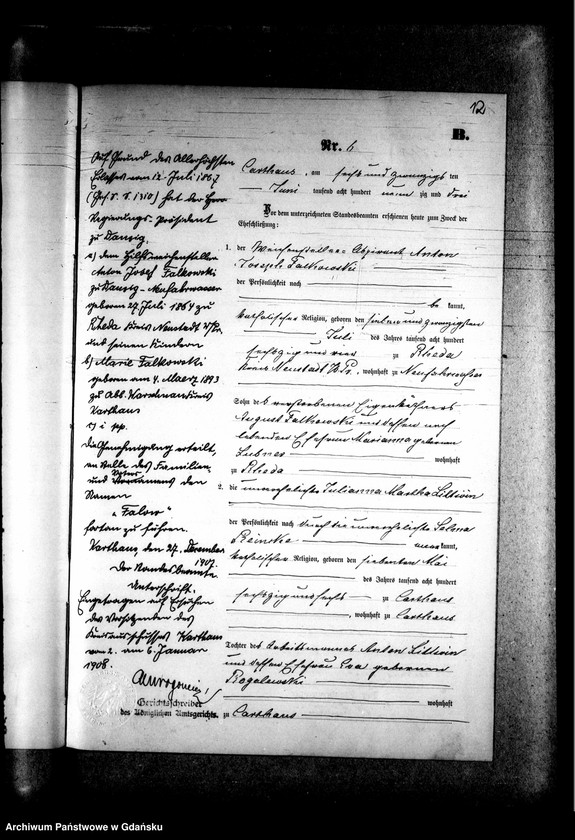 12
B.
Nr. 6
Auf Grund des Allerhöchsten
Erlasses vom 12. Juli 1867
(Ges. S. S. 1310) hat der Herr
Regierungs-Präsident
zu Danzig,
a) dem Hilfsweichensteller
Anton Josef Falkowski
zu Danzig-Neufahrwasser
geboren 27. Juli 1864 zu
Rheda Kreis Neustadt W/Pr.
und seinen Kindern
b) Marie Falkowski
geboren am 4. Maerz 1893
zu Abb. Kreis
Karthaus
pp.
die Genehmigung erteilt,
an Stelle des Familien
und Vornamens den
Namen
"Falow"
fortan zu führen.
Karthaus, den 27. Dezember
1907.
Der Standesbeamte.
Unterschrift.
Eingetragen auf Ersuchen
des Vorsitzenden des
Kreisausschusses Karthaus
vom 2. am 6. Januar
1908.
Gerichtsschreiber
des Königlichen Amtsgerichts.
Carthaus, am sechs und zwanzigsten
Juni tausend acht hundert neun zig und drei
Vor dem unterzeichneten Standesbeamten erschienen heute zum Zweck der
Eheschließung:
1. der Weichensteller-Aspirant Anton
Joseph Falkowski
der Persönlichkeit nach
be kannt,
katholischer Religion, geboren den sieben und zwanzigsten
Juli des Jahres tausend acht hundert
sechszig und vier zu Rheda
Kreis Neustadt W.Pr., wohnhaft zu Neufahrwasser
Sohn des verstorbenen Eigenkäthners
August Falkowski und dessen noch
lebenden Ehefrau Marianna geborene
wohnhaft
zu Rheda
2. die unverehelichte Julianna Martha Littwin
der Persönlichkeit nach durch die unverehelichte Selma
Reincke kannt,
katholischer Religion, geboren den siebenten Mai
des Jahres tausend acht hundert
sechszig und sechs zu Carthaus
, wohnhaft zu Carthaus
Tochter des Arbeitsmannes Anton Littwin
und dessen Ehefrau Eva geborenen
Rogalewski
wohnhaft
zu Carthaus
Archiwum Państwowe w Gdańsku